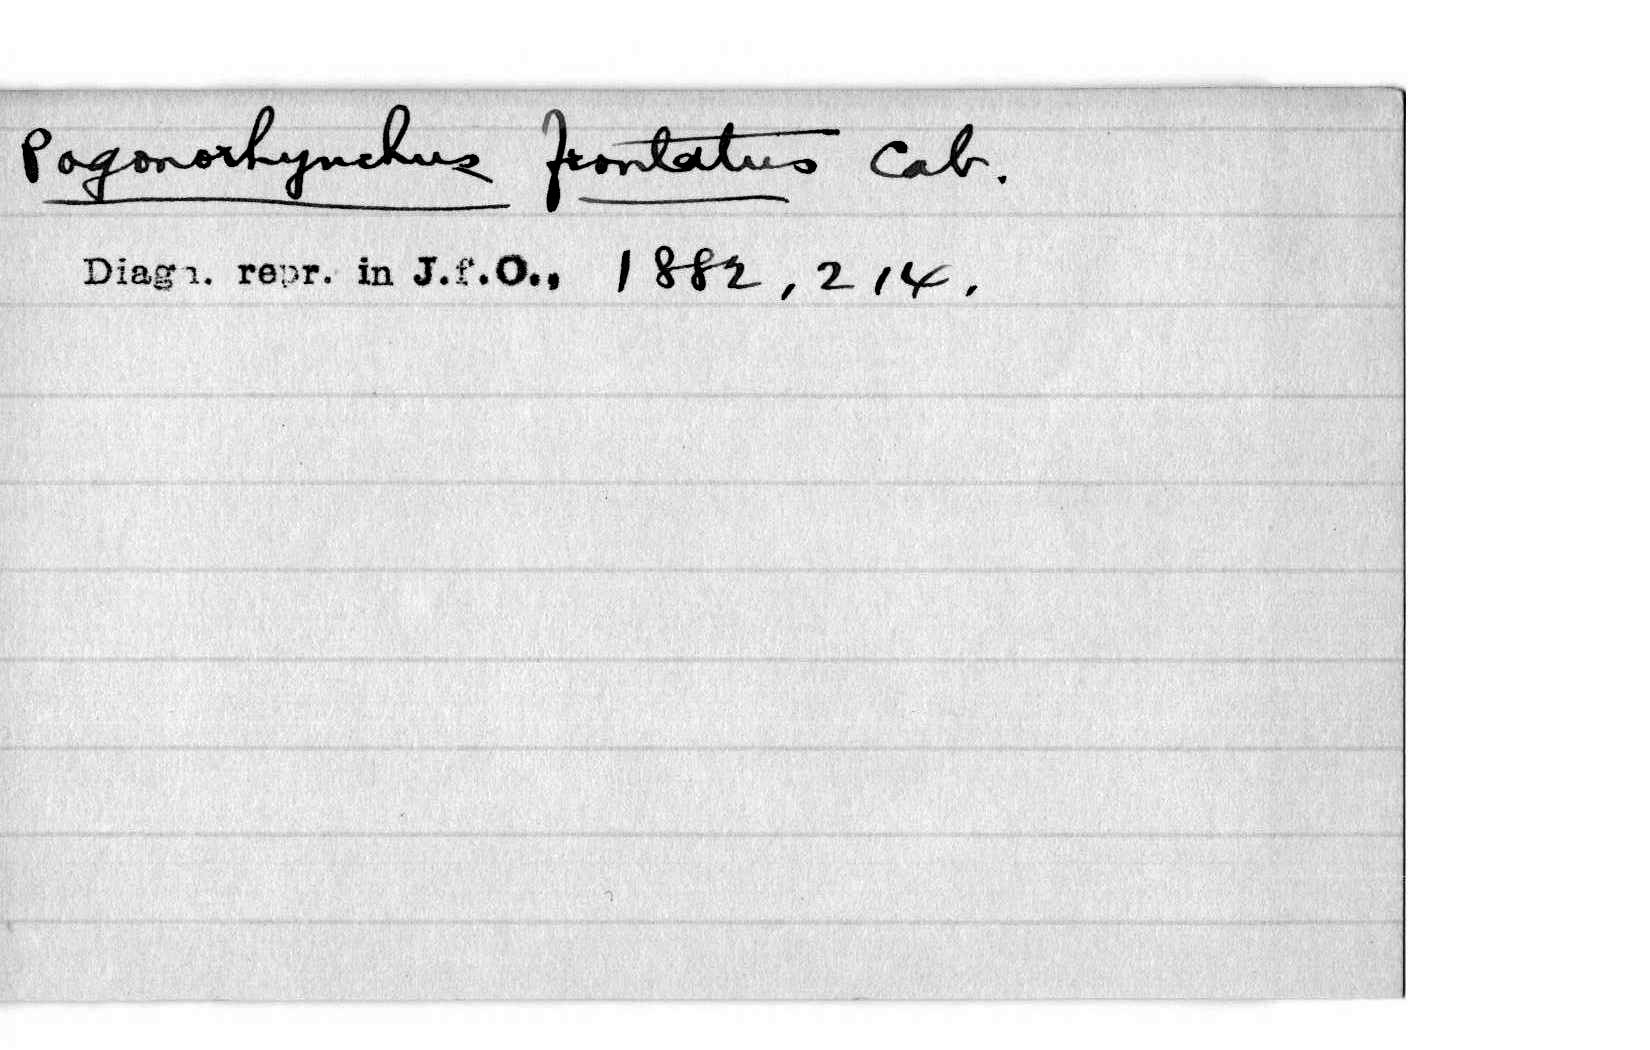 Pogonorhynchus frontatus Cab.
Diagn. repr. in J.f.O., 1882, 214.